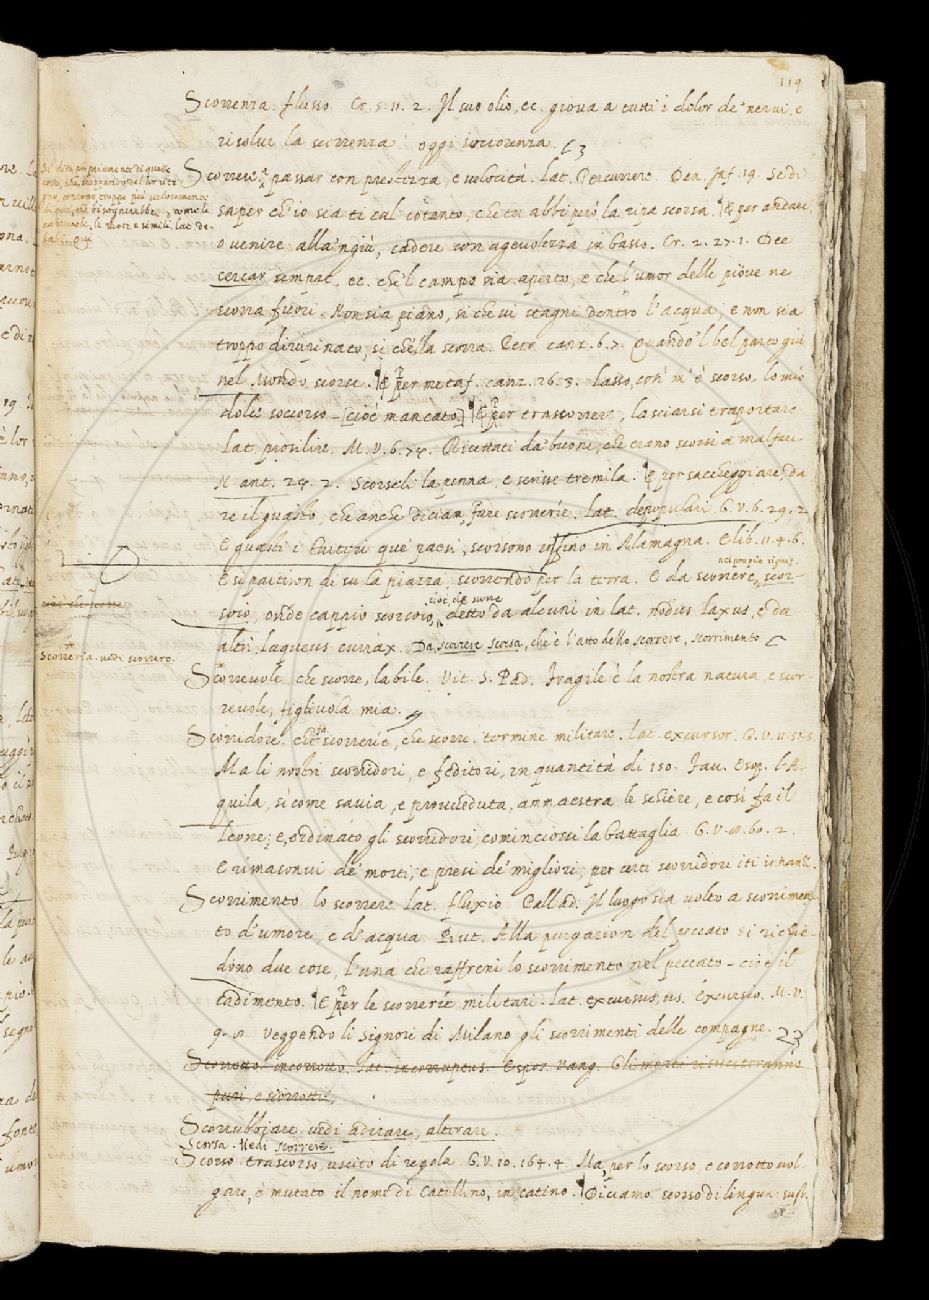 119
Scorrenza. flusso. Cr. 5. 11. 2. Il suo olio, ec. giova a tutti i dolor de' nervi, e
risolve la scorrenza. oggi soccorenza.
Scorrere. passar con prestezza, e velocità. Lat. Percurrere. Dan. Inf. 19. Se di
saper ch'io sia ti cal cotanto, che tu abbi però la ripa scorsa. E per andare,
o venire alla 'ngiù, cadere con agevolezza in basso. Cr. 2. 27. 1. Dee
cercar sempre, ec. che 'l campo sia aperto, e che l'umor delle piove ne
scorra fuori. Non sia piano, sì che vi stagni dentro l'acqua, e non sia
troppo dirivinato, si che la scorra. Petr. canz. 6. 7. Quando 'l bel parto giù
nel Mondo scorse. E per metaf. canz. 26. 3. Lasso, così m'è scorso, lo mio
dolce soccorso [cioè mancato.] E per trascorrere, lasciarsi traportare
Lat. prosilire. M. V. 6. 74. Ricettati da buone, che erano scorsi a malfare
N. ant. 24. 2. Scorseli la penna, e scrisse tremila. E per saccheggiare, da
re il guasto, che anche diciam, fare scorrerie. lat. depopulari. G. V. 6. 29. 2
E guasti i que' paesi, scorsono infino in Alamagna. E lib. 11. 4. 6.
E si partiron di su la piazza, scorrendo per la terra. E da scorrere, nel proprio signif. scor-
soio, onde cappio scorsoio, cioè, che scorre detto da alcuni in lat. nodus laxus, e da
altri, laqueus currax. Da scorrere Scorsa, che è l'atto dello scorrere, scorrimento
Scorreria. vedi scorrere.
Scorrevole che scorre, labile. Vit. S. Pad. Fragile è la nostra natura, e scor-
revole, figliuola mia.
Scorridore. che fa scorrerie, che scorre. termine militare. lat. excursor. G. V. 11. 51. 5
Ma li nostri scorridori, e feditori, in quantità di 150. Fav. Esop. l'A-
quila, sì come savia, e provveduta, ammaestra le schiere, e così fa il
leone: e, ordinato gli scorridori, cominciossi la battaglia. G. V. 10. 60. 2.
E rimasonvi de' morti, e presi de' migliori, per certi scorridori iti innanzi.
Scorrimento. lo scorrere. Lat. fluxio Pallad. Il luogo sia volto a scorrimen-
to d'umore, e d'acqua. But. Alla purgazion del peccato si richie-
dono due cose, l'una che raffreni lo scorrimento nel peccato - cioè il
cadimento. E per le scorrerie militari. lat. excursus, us. Excursio. M. V.
9. Veggendo li Signori di Milano gli scorrimenti delle compagne.
Scorrotto incorrotto. lat. incorruptus. Espos. Vang. Gli morti risuciteranno
puri, e scorrotti.
Scorrubbiare. vedi adirare, altirare.
Scorsa. Vedi scorrere.
Scorso trascorso, uscito di regola. G. V. 10. 164. 4. Ma, per lo scorso, e corrotto vol-
gare, è mutato il nome di Catellino, in catino. Diciamo scorso di lingua: sust.